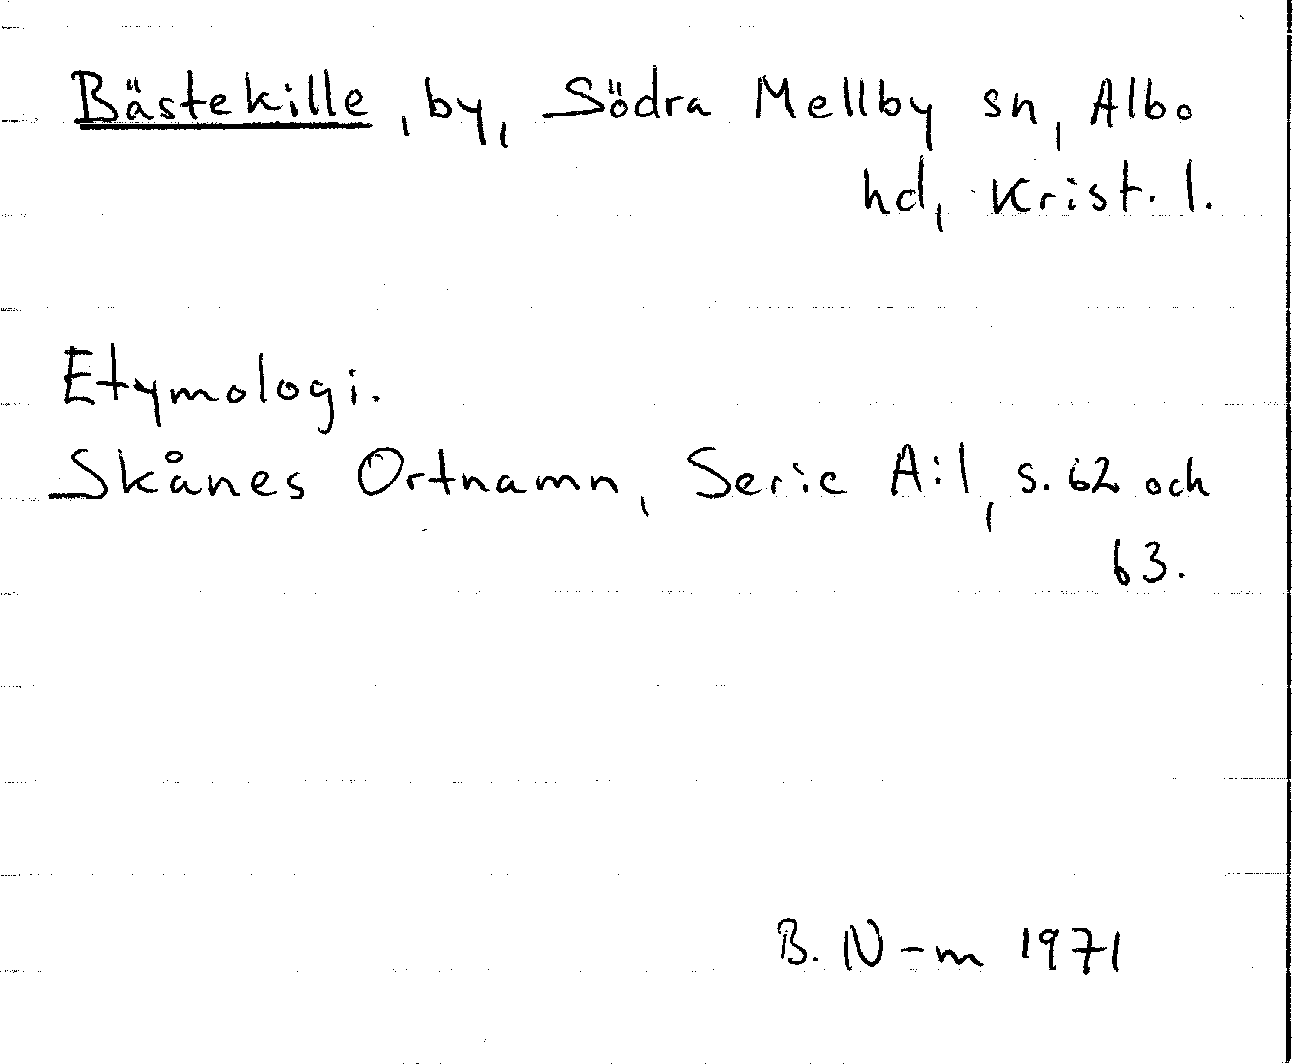 Bästekille, by, Södra Mellby sn, Albo
hd, Krist. l.
Etymologi.
Skånes Ortnamn, Serie A:1, s. 62 och
63.
B. N-m 1971